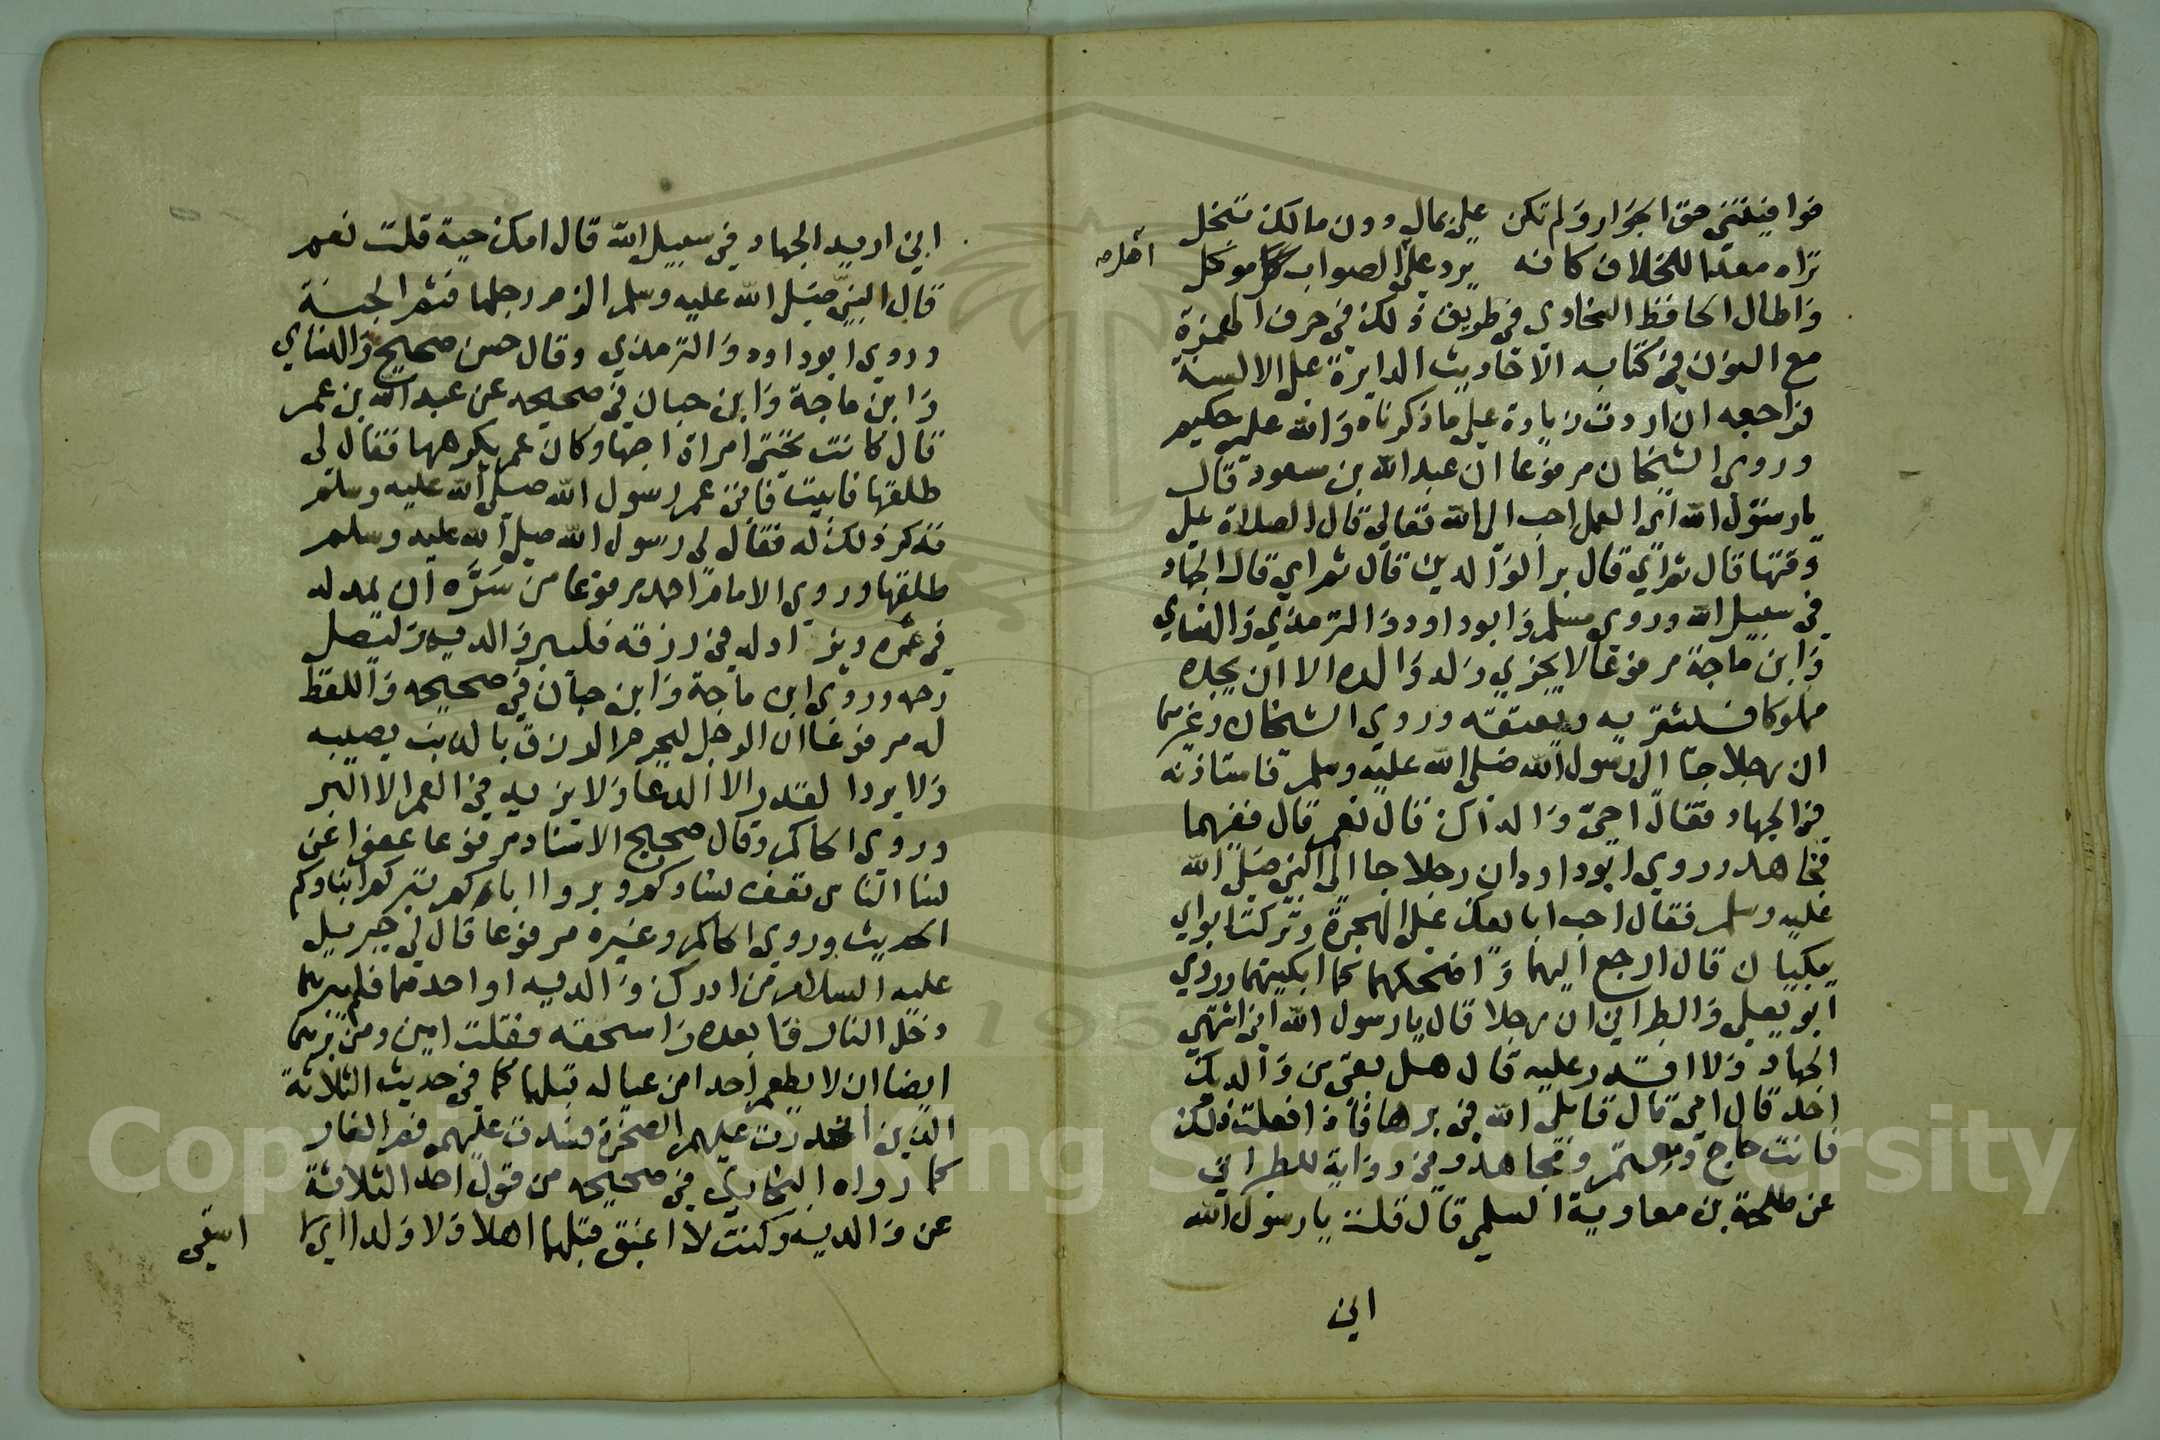 فوافيتني حق الجوار ولم تكن علي بمال دون مالك تبخل
تراه معدا للخلاف كانه برد على الصواب موكل
اهله
واطال الحافظ السخاوي في طريق ذلك في حرف الهمزة
مع النون في كتابه الاحاديث الدايرة على الالسنة
فراجعه ان اردت زيادة على ما ذكرناه والله عليم حكيم
وروى الشيخان مرفوعا ان عبد الله بن مسعود قال
يا رسول الله اي العمل احب الى الله تعالى قال الصلاة على
وقتها قال ثم اي قال بر الوالدين قال ثم اي قال الجهاد
في سبيل الله وروى مسلم وابو داود والترمذي والنساي
وابن ماجة مرفوعا لا يجزي ولد والده الا ان يجده
مملوكا فيشتريه ويعتقه وروى الشيخان وغيرهما
ان رجلا جا الى رسول الله صلى الله عليه وسلم فاستاذنه
في الجهاد فقال احي والداك قال نعم قال ففيهما
فجاهد وروى ابو داود ان رجلا جا الى النبي صلى الله
عليه وسلم فقال احب ابايعك على الهجرة وتركت ابواي
يبكيان قال ارجع اليهما واضحكهما كما ابكيتهما وروى
ابو يعلى والطبراني ان رجلا قال يا رسول الله اني اشتهي
الجهاد ولا اقدر عليه قال هل بقي من والديك
احد قال امي قال قابل الله في برها فاذا فعلت ذلك
فانت حاج ومعتمر ومجاهد وفي رواية للطبراني
عن طلحة بن معاوية السلمي قال قلت يا رسول الله
اني
اني اريد الجهاد في سبيل الله قال امك حية قلت نعم
قال النبي صلى الله عليه وسلم الزم رجلها فثم الجنة
وروى ابو داود والترمذي وقال حسن صحيح والنساي
وابن ماجة وابن حبان في صحيحه عن عبد الله بن عمر
قال كانت تحتي امراة احبها وكان عمر يكرهها فقال لي
طلقها فابيت فاتى عمر رسول الله صلى الله عليه وسلم
فذكر ذلك له فقال لي رسول الله صلى الله عليه وسلم
طلقها وروى الامام احمد مرفوعا من سره ان يمد له
في عمره ويزاد له في رزقه فليبر والديه وليصل
رحمه وروى ابن ماجة وابن حبان في صحيحه واللفظ
له مرفوعا ان الرجل ليحرم الرزق بالذنب يصيبه
ولا يرد القدر الا الدعا ولا يزيد في العمر الا البر
وروى الحاكم وقال صحيح الاسناد مرفوعا عفوا عن
نسا الناس تعف نساوكم وبروا اباءكم تبركم ابناوكم
الحديث وروى الحاكم وغيره مرفوعا قال لي جبريل
عليه السلام من ادرك والديه او احدهما فلم يبرهما
دخل النار فابعده واسحقه فقلت امين ومن برهما
ايضا ان لا يطعم احدا من عياله قبلهما كما في حديث الثلاثة
الذين انحدرت عليهم الصخرة فسدت عليهم فم الغار
كما رواه البخاري في صحيحه من قول احد الثلاثة
عن والديه وكنت لا اغبق قبلهما اهلا ولا ولدا اي لا
اسقي
Copyright © King Saud University
195